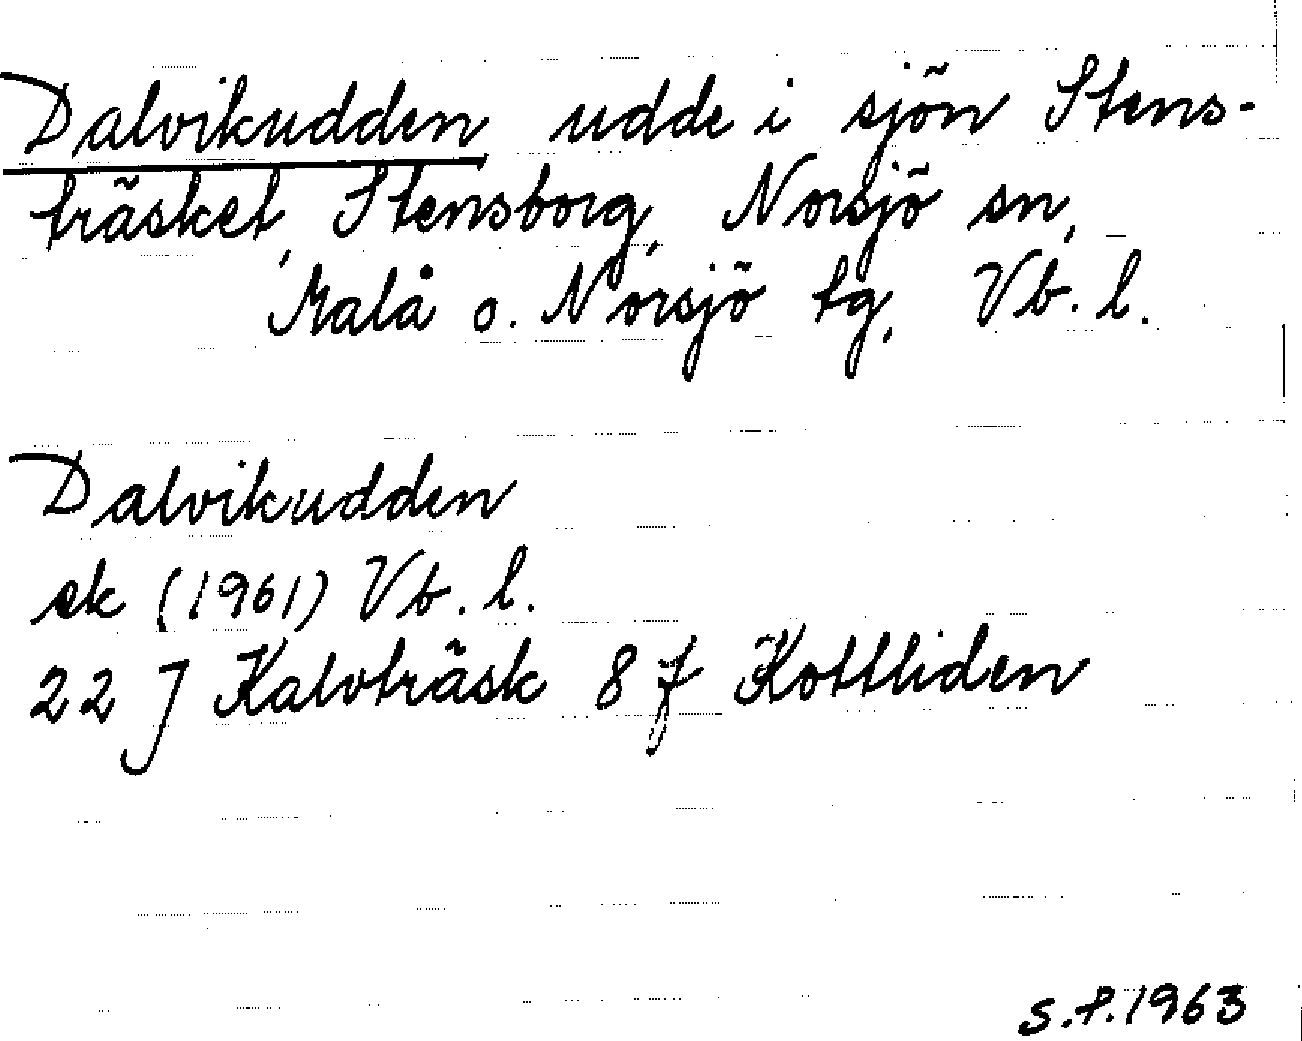 Dalvikudden udde i sjön Stens-
träsket, Stensborg, Norsjö sn,
Malå o. Norsjö tg, Vb. l.
Dalvikudden
ek (1961) Vb. l.
22 J Kalvträsk 8 f Kottliden
S.P.1963